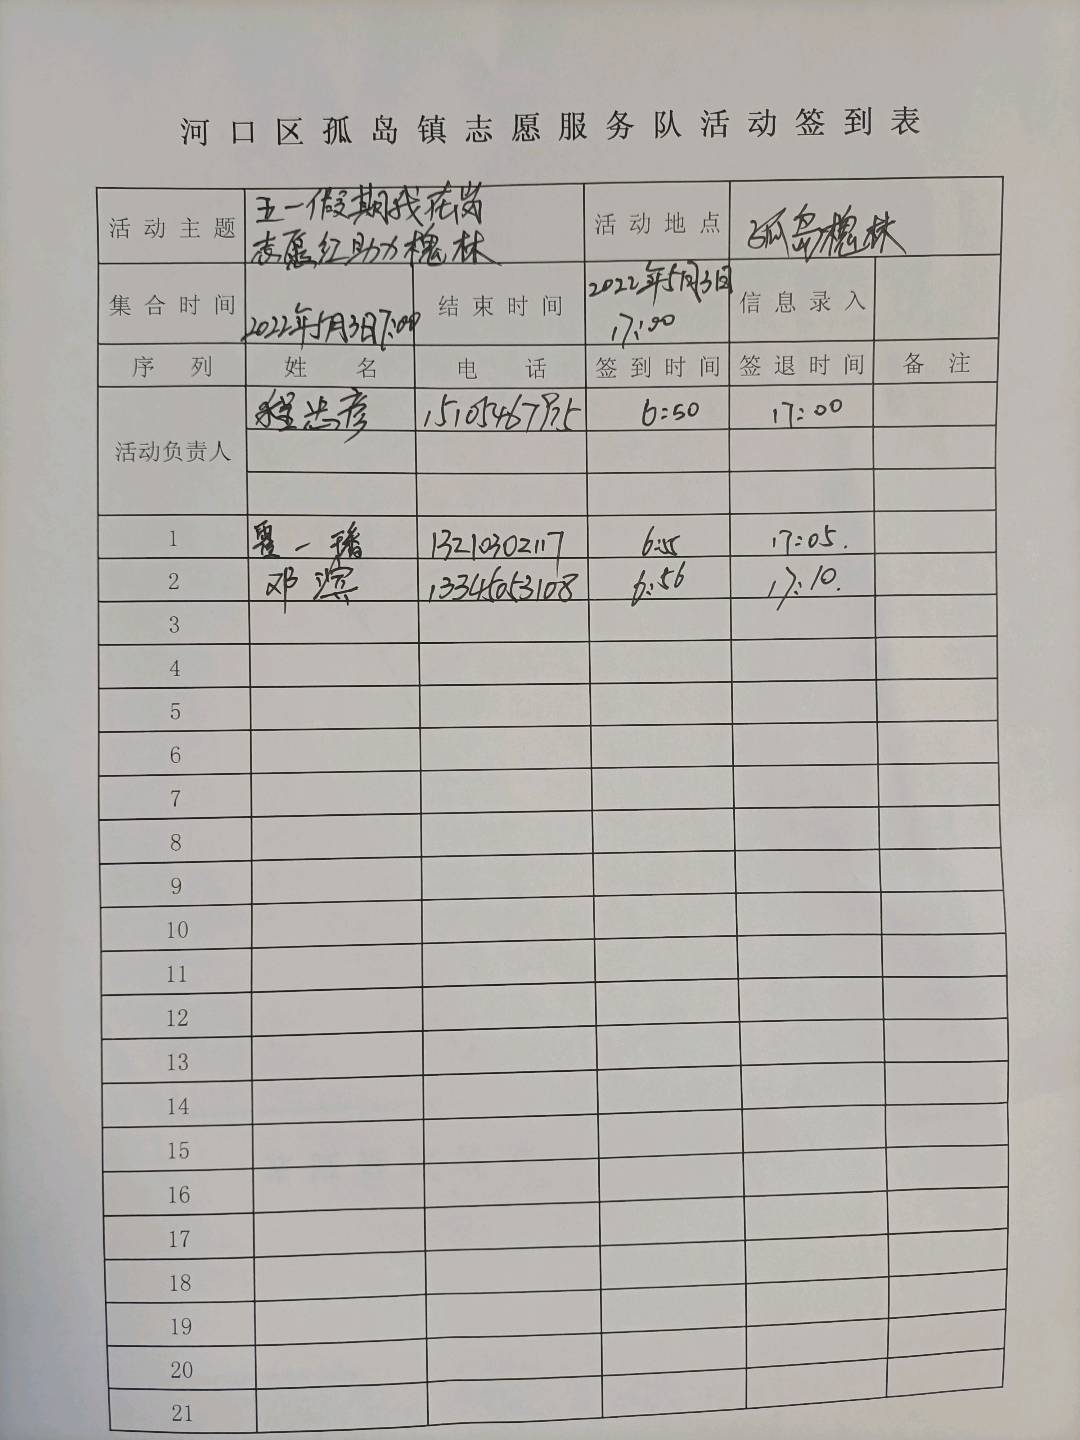 河口区孤岛镇志愿服务队活动签到表
活动主题 五一假期我在岗 活动地点 孤岛槐林
志愿红助力槐林
集合时间 2022年5月3日7:00 结束时间 2022年5月3日 信息录入
17:00
序列 姓名 电话 签到时间 签退时间 备注
程志彦 6:50 17:00
活动负责人
1 一 13210302117 6:55 17:05.
2 邓滨 13345053108 6:56 17:10.
3
4
5
6
7
8
9
10
11
12
13
14
15
16
17
18
19
20
21